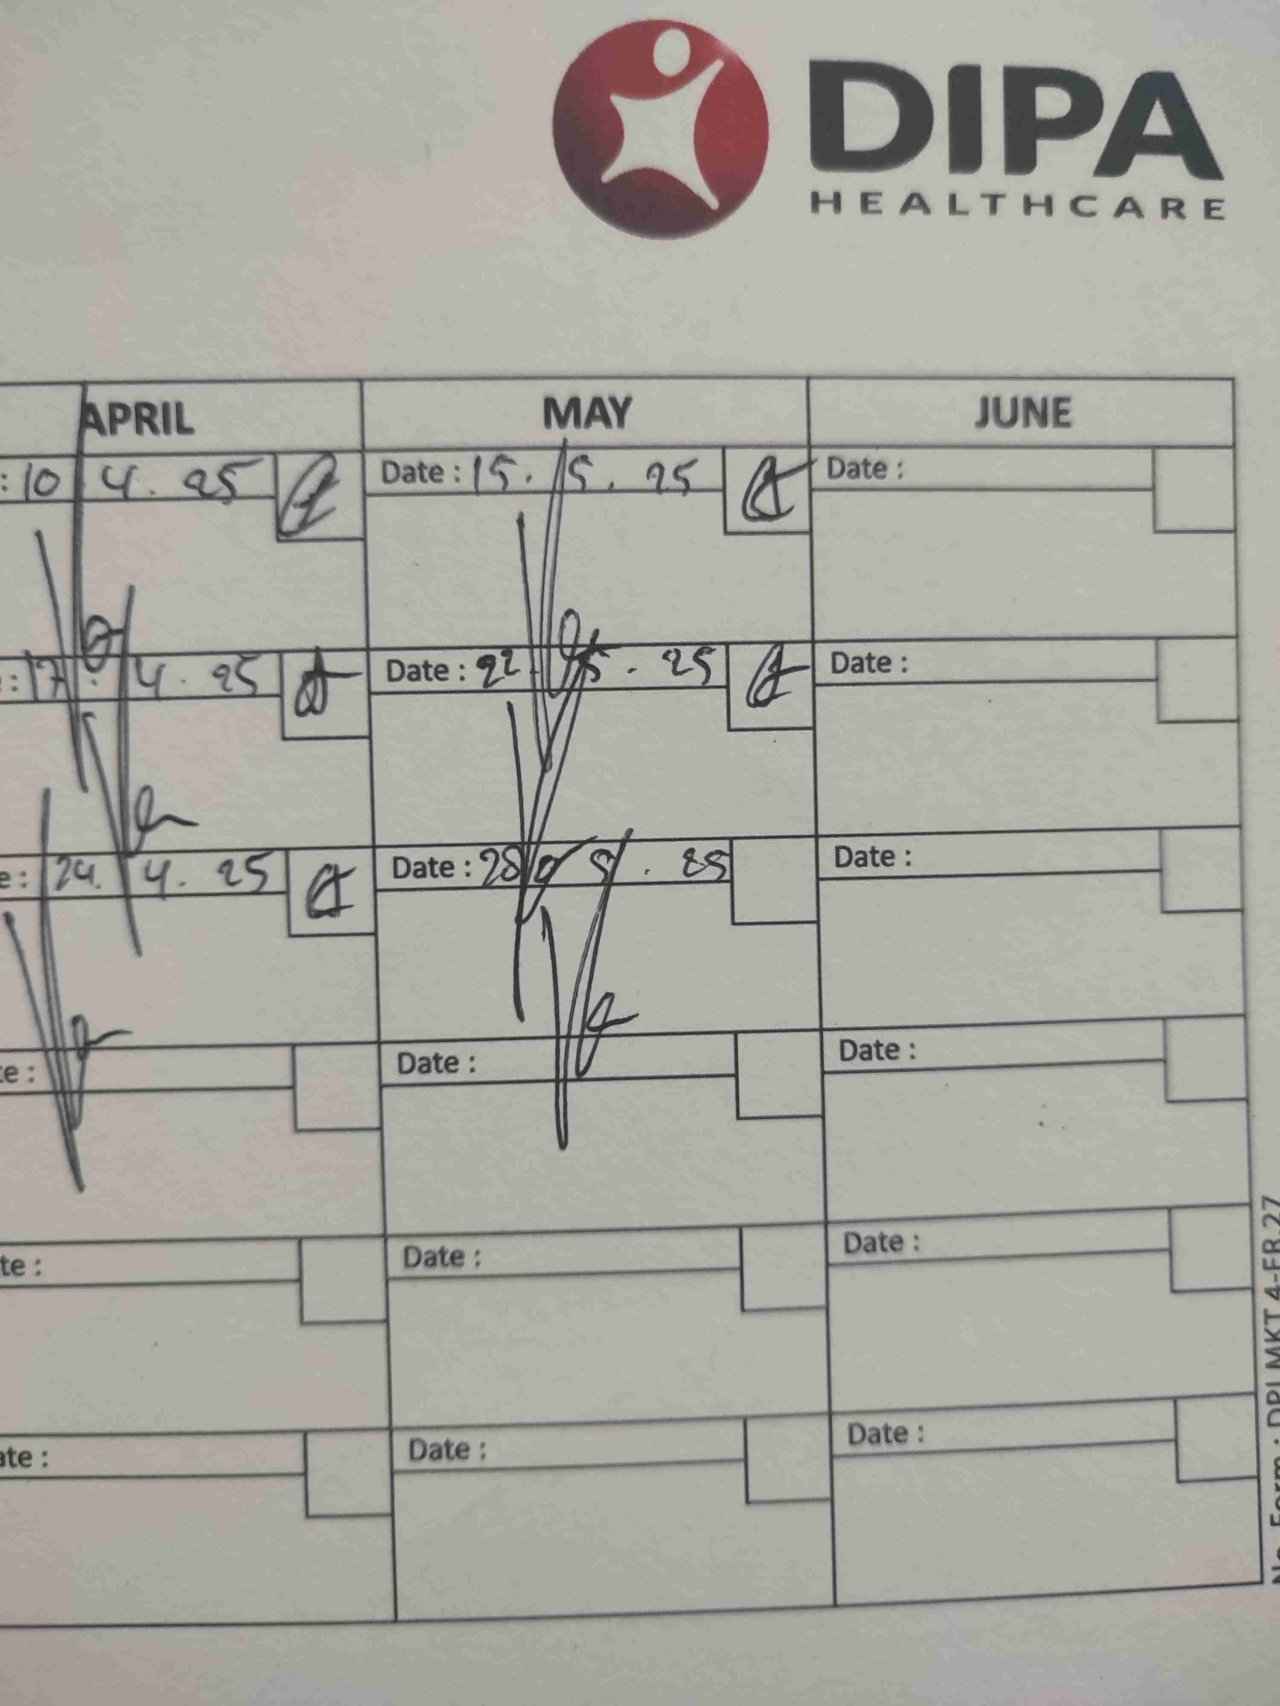 DIPA
HEALTHCARE
APRIL MAY JUNE
: 10 4. 25 Date : 15. 5. 25 Date :
: 17. 4. 25 Date : 22 5. 25 Date :
e : 24. 4. 25 Date : 28 5. 25 Date :
te : Date : Date :
te : Date : Date :
ate : Date : Date :
No. Form : DPI.MKT.4-FR.27